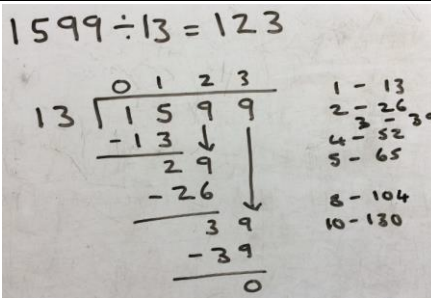 1599÷13 = 123
0 1 2 3
13 1 5 9 9
- 1 3
2 9
- 2 6
3 9
- 3 9
0
1 - 13
2 - 26
3 - 39
4 - 52
5 - 65
8 - 104
10 - 130